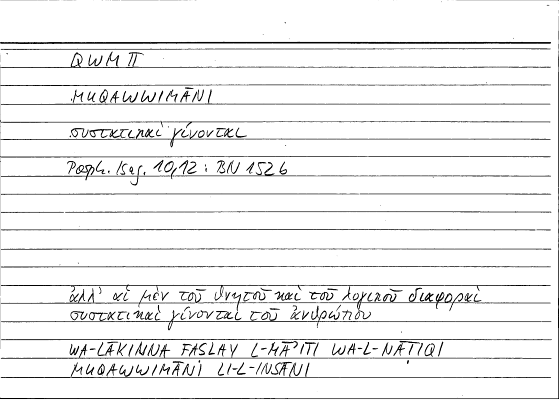 QWM II
MUQAWWIMĀNI
συστατικαὶ γίνονται
Porph. Isag. 10,12 : BN 152 b
ἀλλ' αἱ μὲν τοῦ θνητοῦ καὶ τοῦ λογικοῦ διαφοραὶ
συστατικαὶ γίνονται τοῦ ἀνθρώπου
WA-LĀKINNA FAṢLAY L-MĀʾITI WA-L-NĀṬIQI
MUQAWWIMĀNI LI-L-INSĀNI